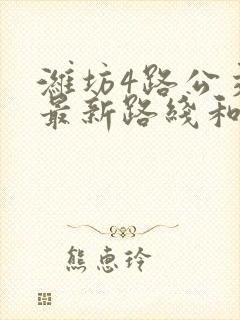 潍坊4路公交
最新路线和
熊惠玲